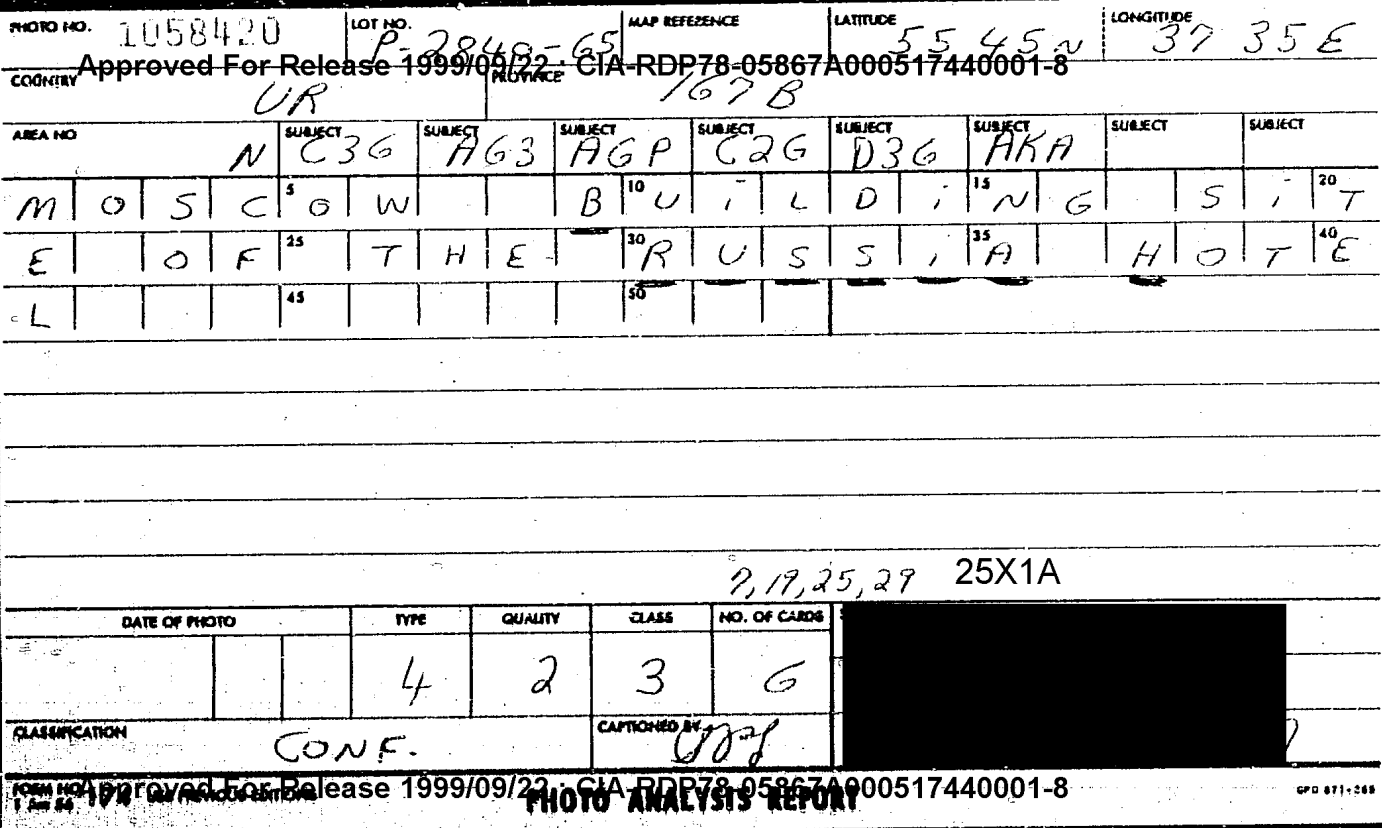 PHOTO NO. 1058420 LOT NO. P-2840-65 MAP REFERENCE LATITUDE 55 45 N LONGITUDE 37 35 E
Approved For Release 1999/09/22 : CIA-RDP78-05867A000517440001-8
COUNTRY UR PROVINCE 167B
AREA NO N SUBJECT C3G SUBJECT AG3 SUBJECT AGP SUBJECT C2G SUBJECT D3G SUBJECT AKA SUBJECT SUBJECT
5 10 15 20
MOSCOW BUiLDiNG SiT
25 30 35 40
E OF THE RUSSiA HOTE
45 50
L
7, 19, 25, 29 25X1A
DATE OF PHOTO TYPE QUALITY CLASS NO. OF CARDS
4 2 3 6
CLASSIFICATION CONF. CAPTIONED BY
FORM NO. USE PREVIOUS EDITIONS
Approved For Release 1999/09/22 : CIA-RDP78-05867A000517440001-8
PHOTO ANALYSIS REPORT
GPO 871-265